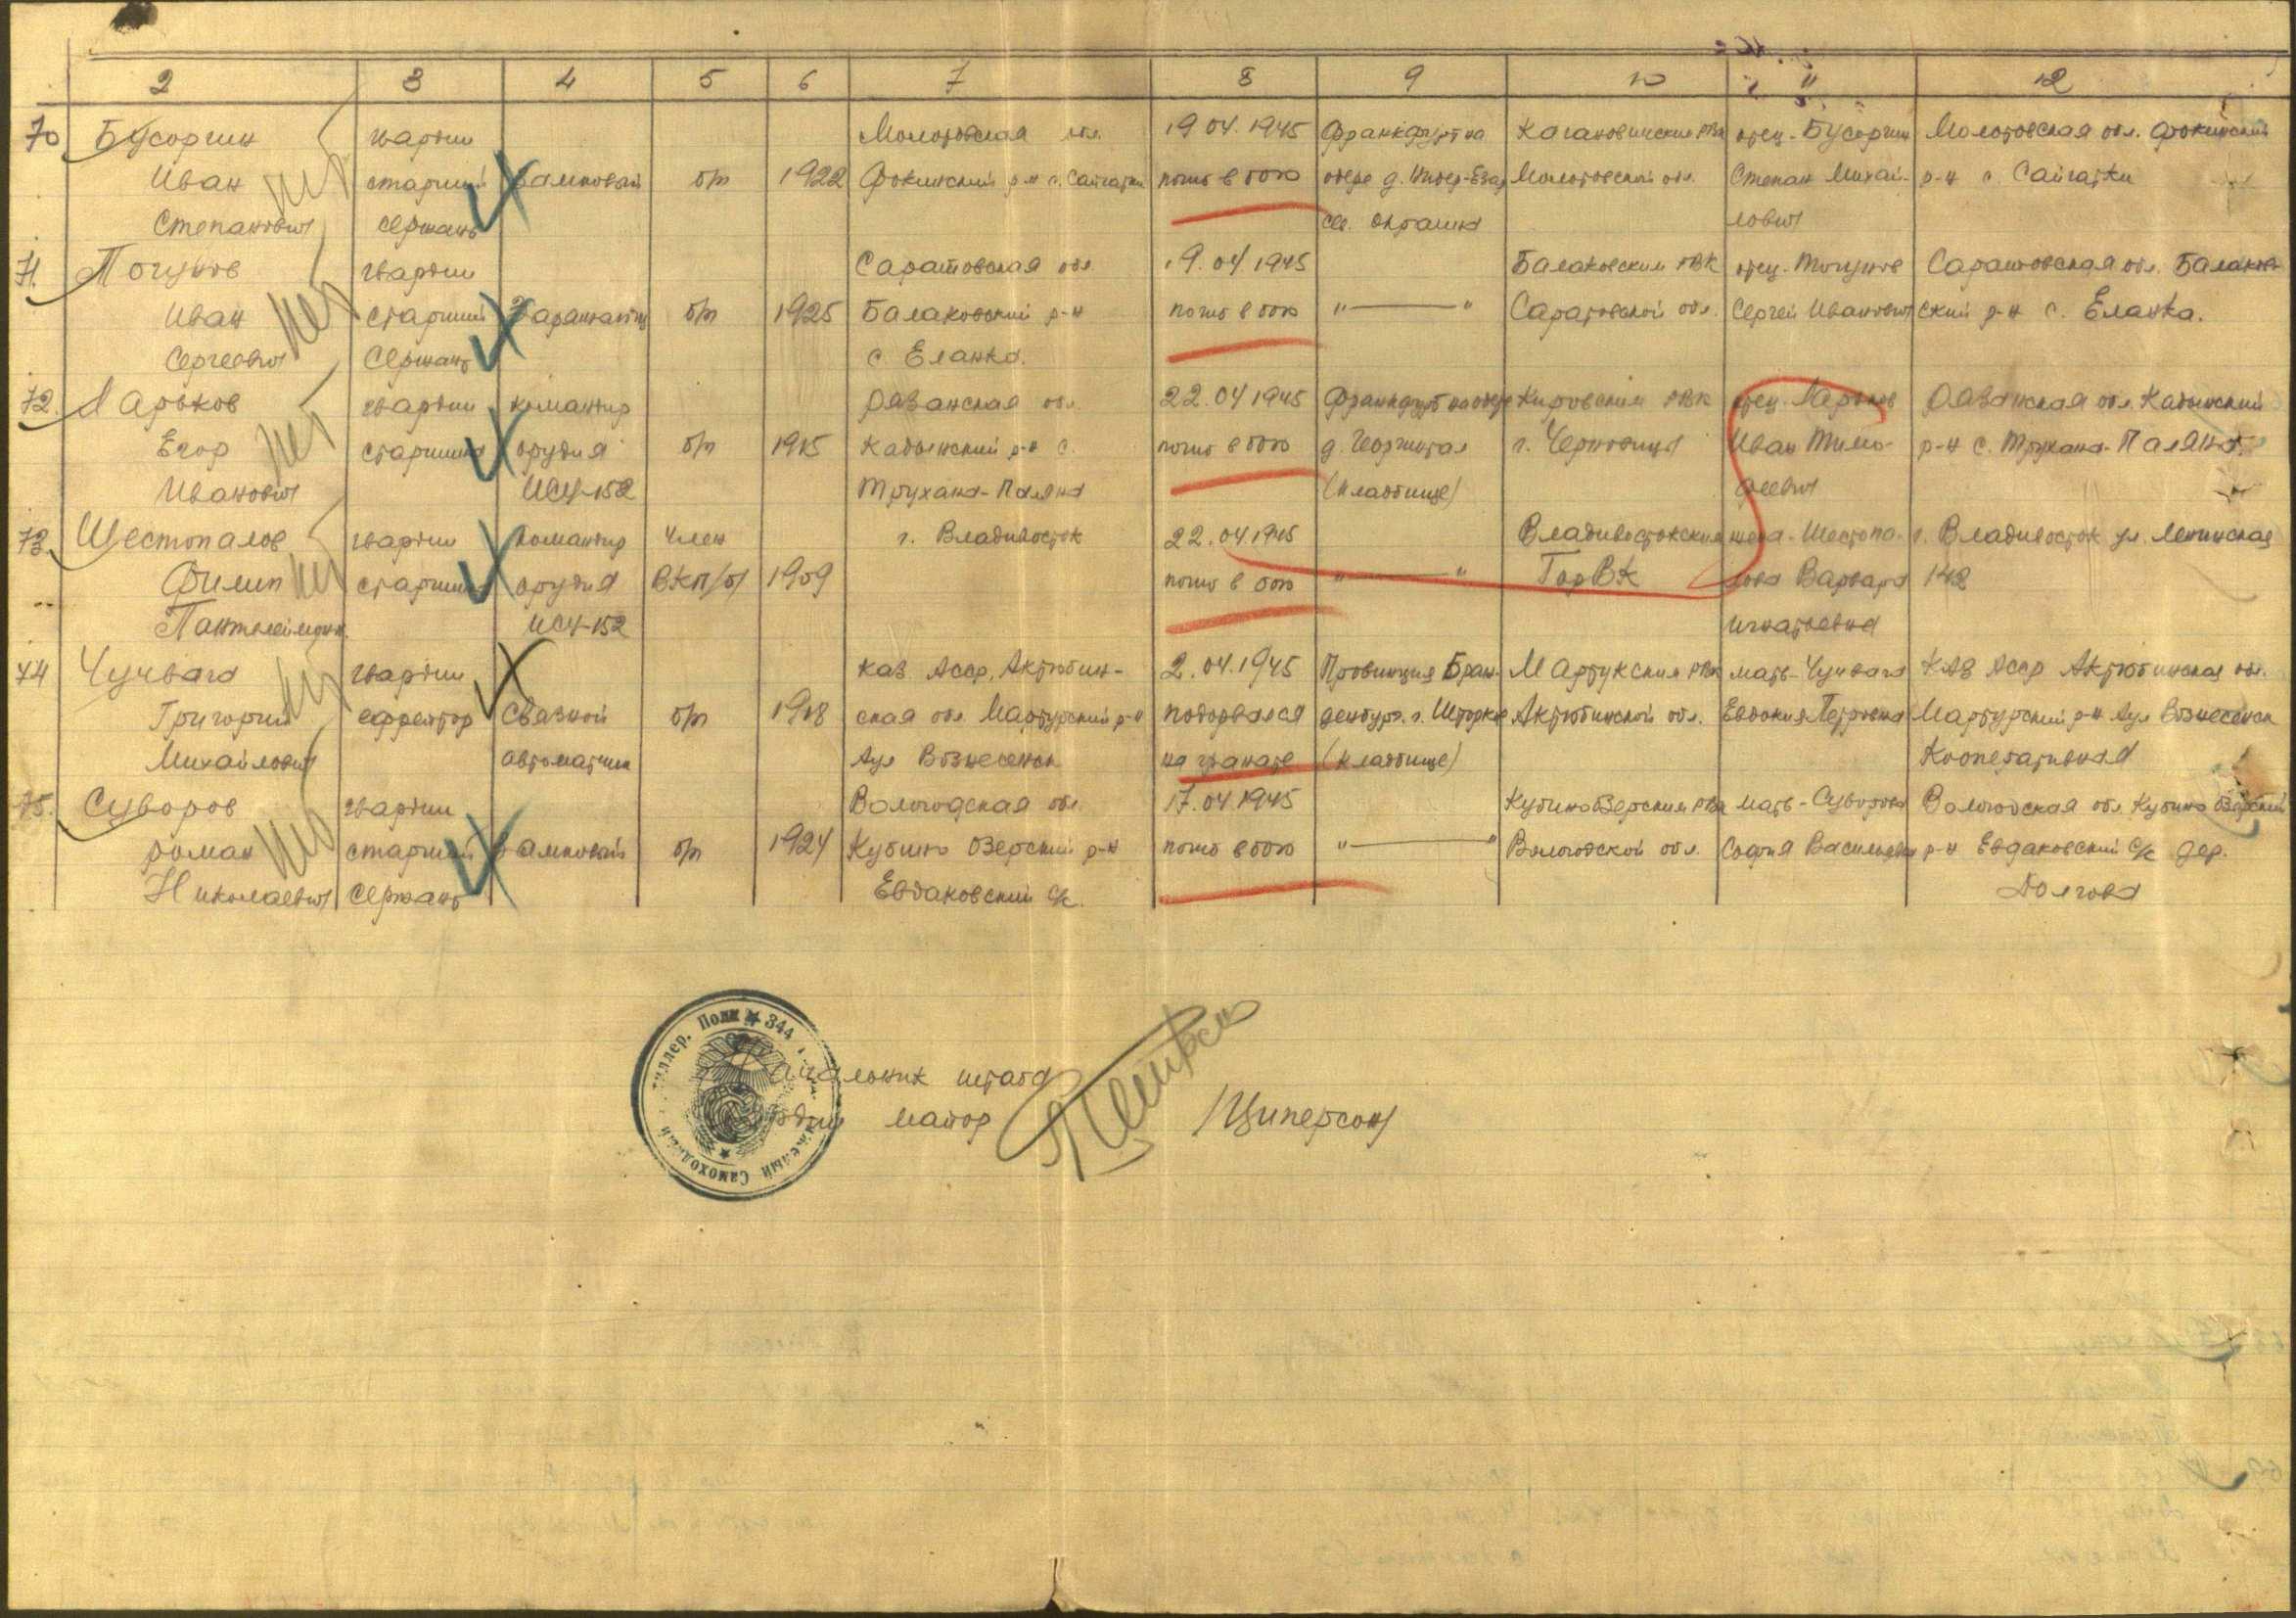 2 3 4 5 6 7 8 9 10 11 12
70 Бусоргин гвардии Молотовская обл. 19.04.1945 Франкфурт на Кагановичским РВК отец - Бусоргин Молотовская обл. Фокинский
Иван старший замковый б/п 1922 Фокинский р-н с. Сайгатки погиб в бою одере д. Молотовской обл. Степан Михай- р-н с. Сайгатки
Степанович сержант сев. окраина лович
71. гвардии Саратовская обл. 19.04.1945 Балаковским РВК отец Саратовская обл. Балаков-
Иван старший Заряжающий б/п 1925 Балаковский р-н погиб в бою "—" Саратовской обл. Сергей Иванович ский р-н с. Еланка.
Сергеевич Сержант с Еланка.
72. Ларьков гвардии командир Рязанская обл. 22.04.1945 Франкфурт на одере Кировским РВК отец Ларьков Рязанская обл. Кадомский
Егор старшина орудия б/п 1915 Кадомский р-н с. погиб в бою д. г. Черновицы Иван Тимо- р-н с. Трухана-Паляна.
Иванович ИСУ-152 Трухана-Паляна (кладбище) феевич
73. Шестопалов гвардии командир член г. Владивосток 22.04.1945 Владивостокским жена - Шестопа- г. Владивосток ул. Ленинская
Филип старшина орудия ВКП/б/ 1909 погиб в бою "—" ГорВК лова Варвара 142
ИСУ-152 Игнатьевна
74 Чучвага гвардии Каз АССР, Актюбин- 2.04.1945 Провинция Бран- Мартукским РВК мать - Чучвага КАЗ АССР Актюбинская обл.
Григорий ефрейтор Связной б/п 1918 ская обл. Мартукский р-н подорвался денбург. г. Шторков Актюбинской обл. Евдокия Петровна Мартукский р-н Аул Вознесенск
Михайлович автоматчик Аул Вознесенск на гранате (кладбище) Кооперативная
75. Суворов гвардии Вологодская обл. 17.04.1945 Кубиноозерским РВК мать - Суворова Вологодская обл Кубино Озерский
роман старший замковый б/п 1924 Кубино Озерский р-н погиб в бою "—" Вологодской обл. София Васильевна р-н Евдаковский с/с дер.
Николаевич Сержант Евдаковский с/с. Долгова
нет
нет
нет
нет
нет
нет
Начальник штаба
гвардии майор /Циперсон/
Тяжелый Самоходный Артиллер. Полк 344